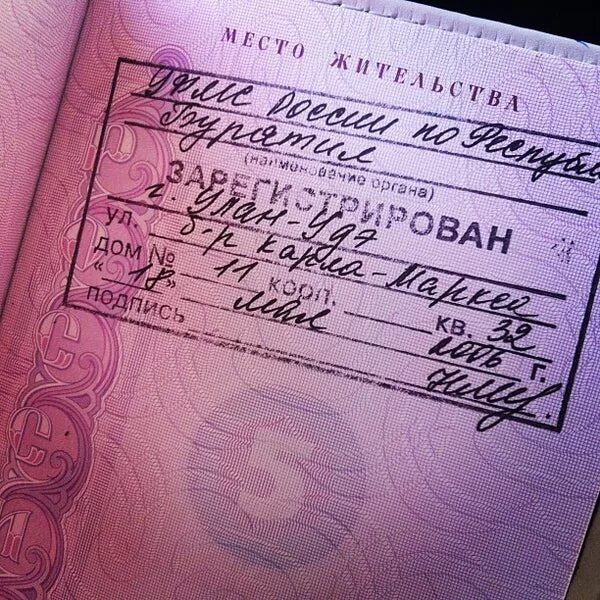 МЕСТО ЖИТЕЛЬСТВА
УФМС России по Республ
Бурятия
(наименование органа)
ЗАРЕГИСТРИРОВАН
г. Улан-Удэ
ул. б-р Карла-Маркса
дом № 11 корп. кв. 32
"18" 2006 г.
подпись
5